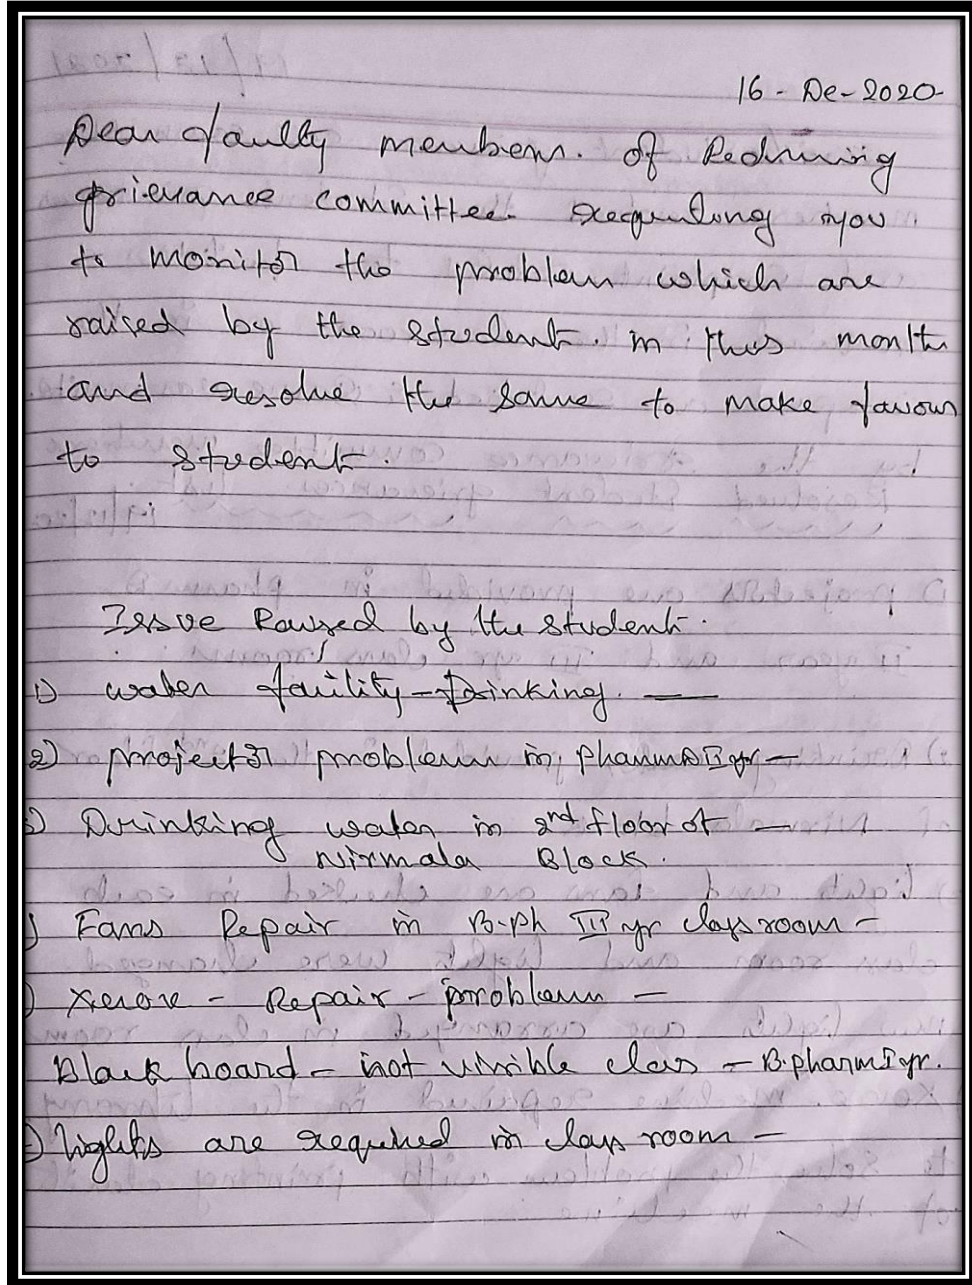 16 - De - 2020
Dear faulty members. of Redrussing
grievance committee. requesting you
to monitor the problem which are
raised by the student. in this month
and resolve the same to make favour
to student.
Issue Raised by the student.
1) water facility - Drinking. —
2) projector problem in pharm D II yr —
3) Drinking water in 2nd floor of —
Nirmala Block.
) Fans Repair in B.ph III yr class room —
) Xerox - Repair - problem —
Black board - not visible class - B.pharm I yr.
) Lights are required in class room —